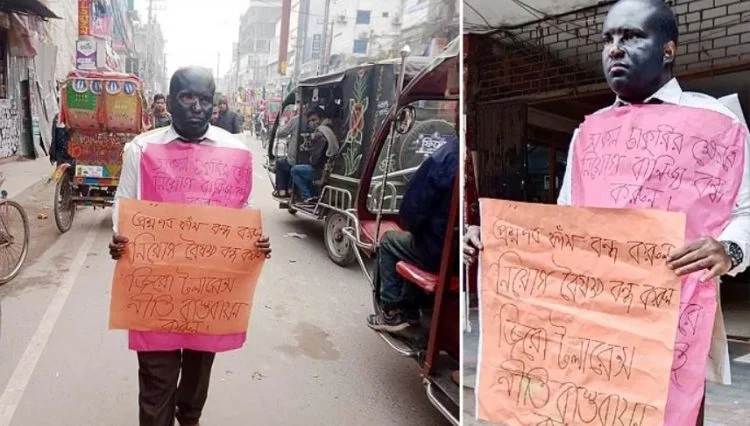 সকল চাকরির ক্ষেত্রে
নিয়োগ বাণিজ্য বন্ধ
করুন
প্রশ্নপত্র ফাঁস বন্ধ করুন
নিয়োগ বৈষম্য বন্ধ করুন
জিরো টলারেন্স
নীতি বাস্তবায়ন
করুন
সকল চাকরির ক্ষেত্রে
নিয়োগ বাণিজ্য বন্ধ
করুন।
প্রশ্নপত্র ফাঁস বন্ধ করুন
নিয়োগ বৈষম্য বন্ধ করুন
জিরো টলারেন্স
নীতি বাস্তবায়ন